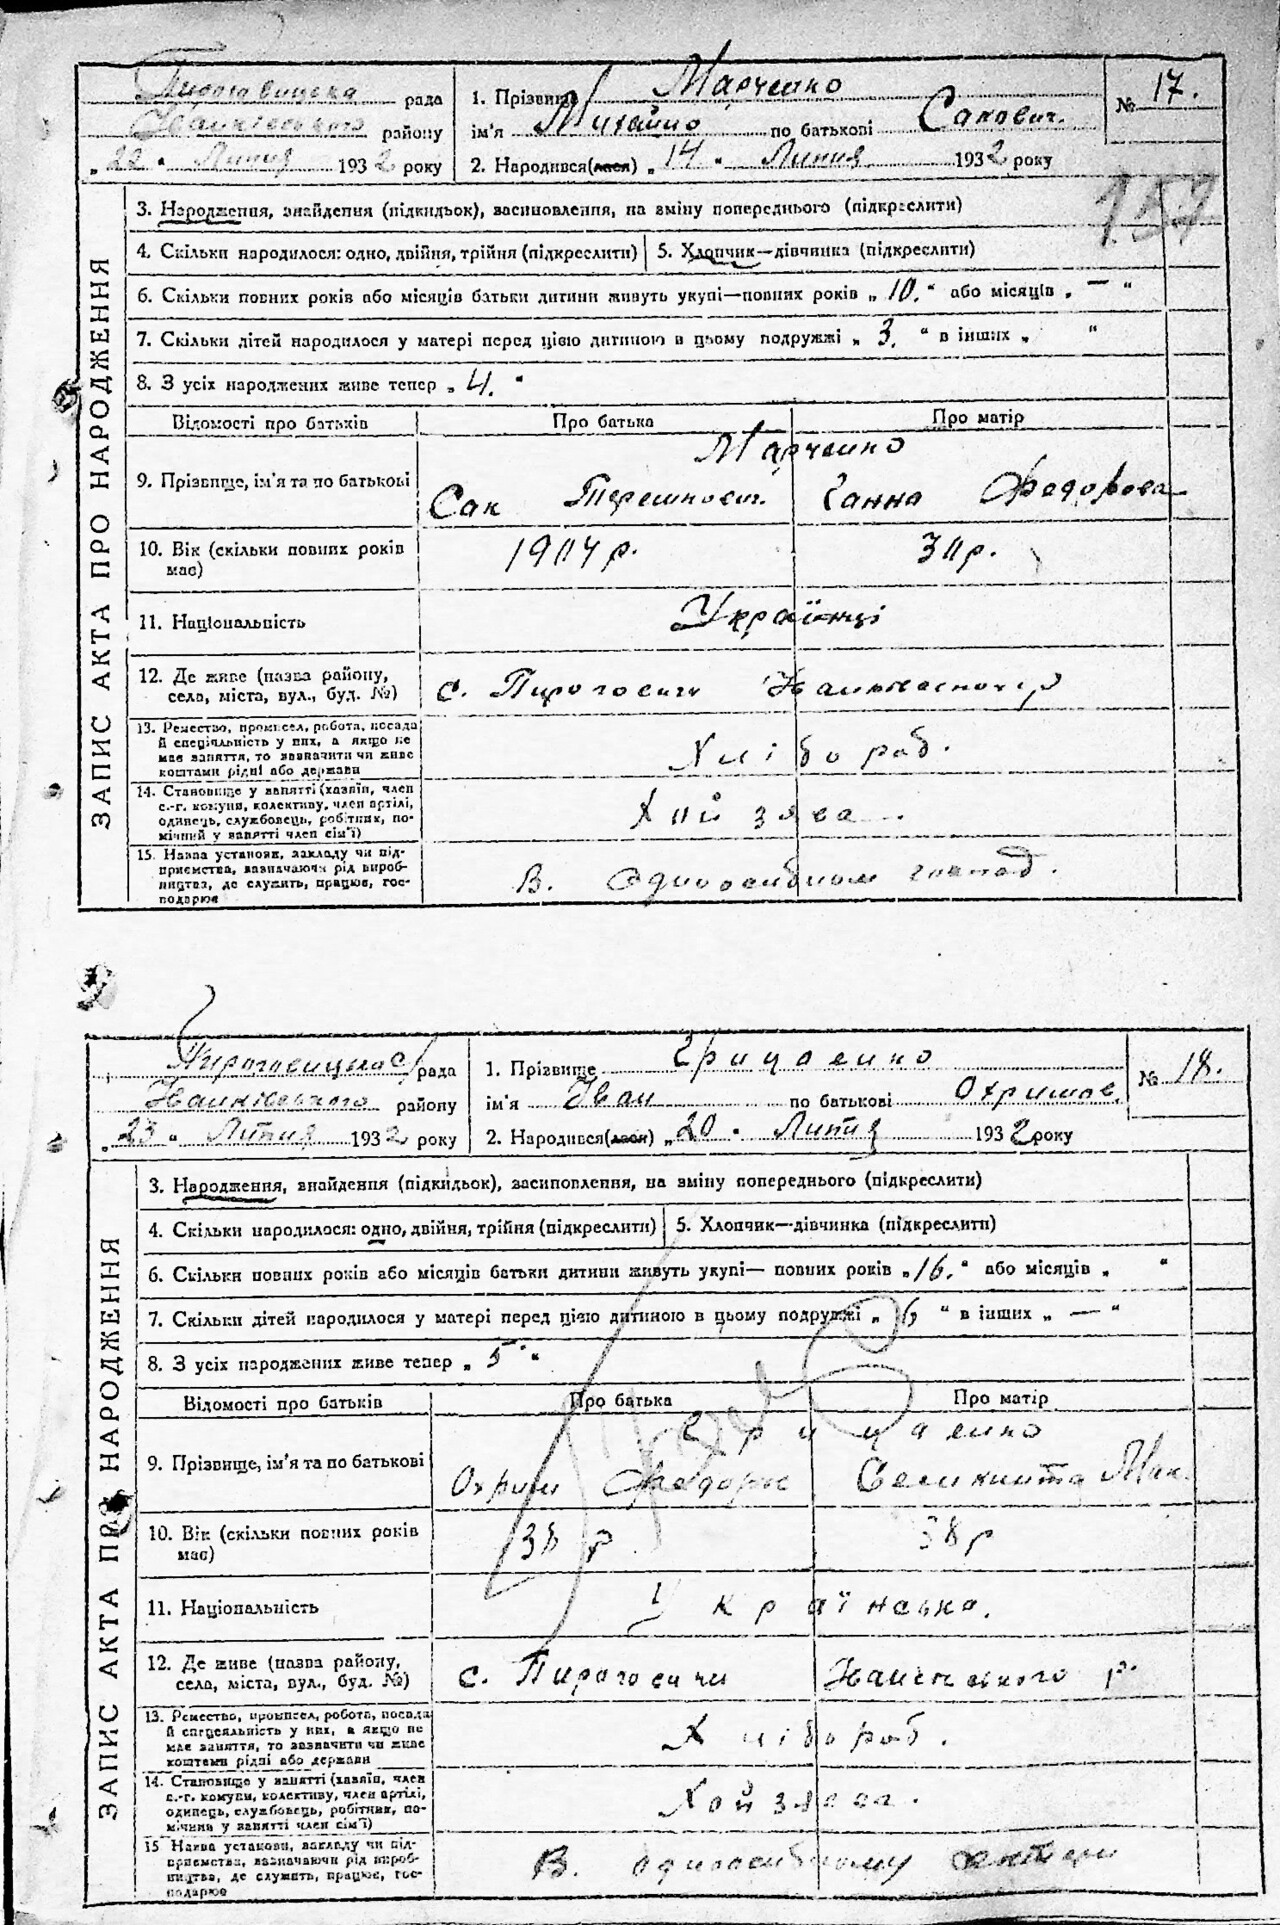 Пироговицька рада
Іванківського району
„22“ Липня 1932 року
1. Прізвище Марченко
ім'я Михайло по батькові Сакович.
2. Народився(лася) „14“ Липня 1932 року
№ 17.
157
ЗАПИС АКТА ПРО НАРОДЖЕННЯ
3. Народження, знайдення (підкидьок), засиновлення, на зміну попереднього (підкреслити)
4. Скільки народилося: одно, двійня, трійня (підкреслити) 5. Хлопчик—дівчинка (підкреслити)
6. Скільки повних років або місяців батьки дитини живуть укупі—повних років „10.“ або місяців „—“
7. Скільки дітей народилося у матері перед цією дитиною в цьому подружжі „3.“ в інших „ “
8. З усіх народжених живе тепер „4.“
Відомості про батьків Про батька Про матір
Марченко
9. Прізвище, ім'я та по батькові Сак Терешкович. Ганна Федорова
10. Вік (скільки повних років 1904 р. 30 р.
має)
11. Національність Українці
12. Де живе (назва району,
села, міста, вул., буд. №) с. Пироговичи Іванківського р
13. Ремество, промисел, робота, посада
й спеціяльність у них, а якщо не
має заняття, то зазначити чи живе
коштами рідні або держави
Хлібороб.
14. Становище у занятті (хазяїн, член
с.-г. комуни, колективу, член артілі,
одинець, службовець, робітник, по-
мічний у занятті член сім'ї)
Хойзява.
15. Назва установи, закладу чи під-
приємства, зазначаючи рід вироб-
ництва, де служить, працює, гос-
подарює
В. одноосибном господ.
Пироговицька с/рада
Іванківського району
„23“ Липня 1932 року
1. Прізвище Грицаенко
ім'я Іван по батькові Охримов.
2. Народився(лася) „20“ Липня 1932 року
№ 18.
ЗАПИС АКТА ПРО НАРОДЖЕННЯ
3. Народження, знайдення (підкидьок), засиновлення, на зміну попереднього (підкреслити)
4. Скільки народилося: одно, двійня, трійня (підкреслити) 5. Хлопчик—дівчинка (підкреслити)
6. Скільки повних років або місяців батьки дитини живуть укупі— повних років „16.“ або місяців „ “
7. Скільки дітей народилося у матері перед цією дитиною в цьому подружжі „6“ в інших „—“
8. З усіх народжених живе тепер „5“
Відомості про батьків Про батька Про матір
Грицаенко
9. Прізвище, ім'я та по батькові Охрим Федоров Мак.
10. Вік (скільки повних років 38 р 38 р
має)
11. Національність Українська.
12. Де живе (назва району,
села, міста, вул., буд. №) с. Пироговичи Іванківського р.
13. Ремество, промисел, робота, посада
й спеціяльність у них, а якщо не
має заняття, то зазначити чи живе
коштами рідні або держави
Хлібороб.
14. Становище у занятті (хазяїн, член
с.-г. комуни, колективу, член артілі,
одинець, службовець, робітник, по-
мічний у занятті член сім'ї)
Хойзява.
15 Назва установи, закладу чи під-
приємства, зазначаючи рід вироб-
ництва, де служить, працює, гос-
подарює
В. одноосибному